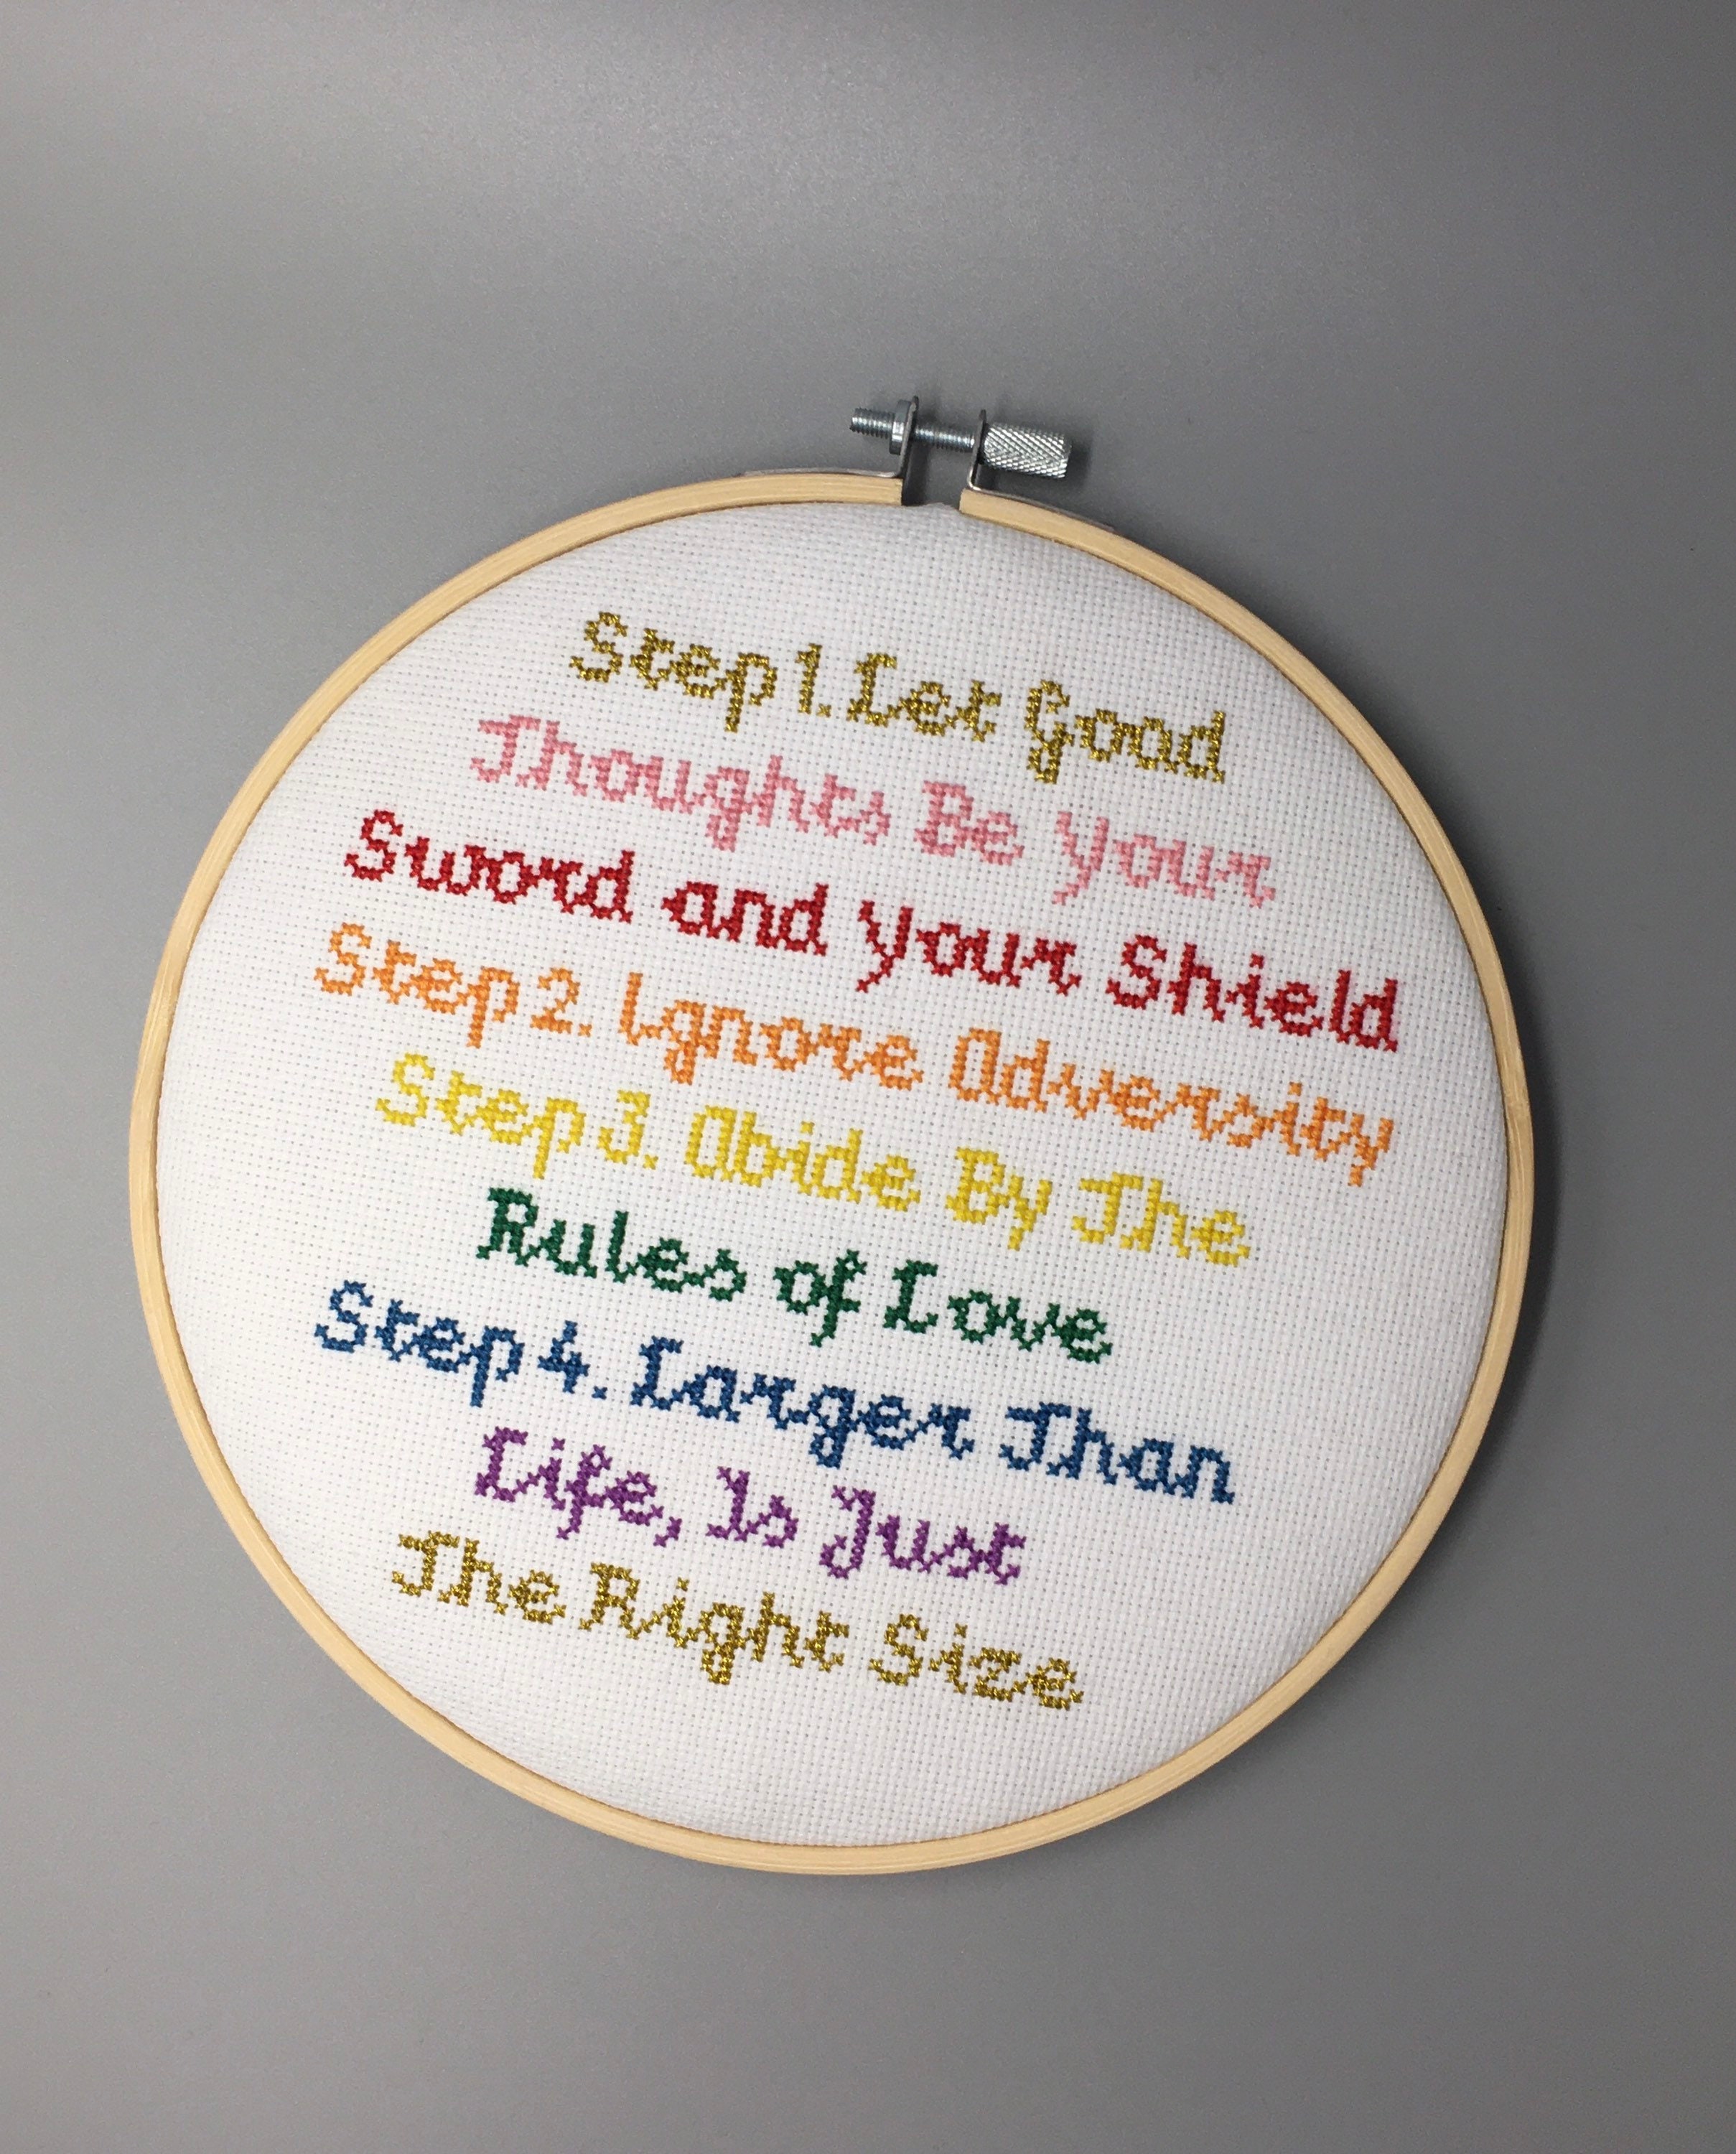 Step 1. Let Good
Thoughts Be your
Sword and your Shield
Step 2. Ignore Adversity
Step 3. Abide By The
Rules of Love
Step 4. Larger Than
Life, Is Just
The Right Size